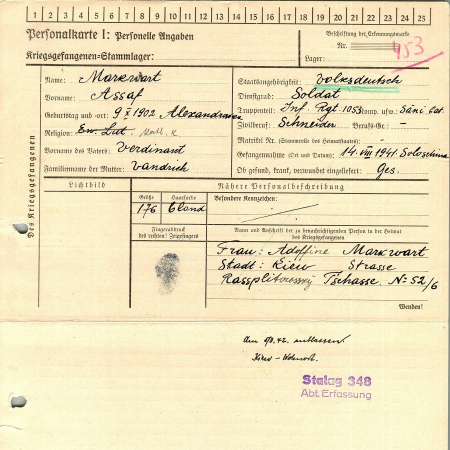 1 2 3 4 5 6 7 8 9 10 11 12 13 14 15 16 17 18 19 20 21 22 23 24 25
Personalkarte I: Personelle Angaben
Kriegsgefangenen-Stammlager:
Beschriftung der Erkennungsmarke
Nr. 453
Lager:
Des Kriegsgefangenen
Name: Markwart
Vorname: Assaf
Geburtstag und -ort: 9 X 1902 Alexandrowka
Religion: Ew. Lut.
Vorname des Vaters: Verdinant
Familienname der Mutter: Vandrich
Staatsangehörigkeit: Volksdeutsch
Dienstgrad: Soldat
Truppenteil: Inf. Rgt. 1053 Komp. usw.: Sani bat.
Zivilberuf: Schneider Berufs-Gr.: -
Matrikel Nr. (Stammrolle des Heimatstaates):
Gefangennahme (Ort und Datum): 14. VIII 1941
Ob gesund, krank, verwundet eingeliefert: Ges.
Lichtbild
Nähere Personalbeschreibung
Größe Haarfarbe Besondere Kennzeichen:
176 blond
Fingerabdruck
des rechten! Zeigefingers
Name und Anschrift der zu benachrichtigenden Person in der Heimat
des Kriegsgefangenen
Frau: Adolfine Markwart
Stadt: Kiew Strasse
Tschasse. No 52/6
Wenden!
entlassen
Stalag 348
Abt. Erfassung